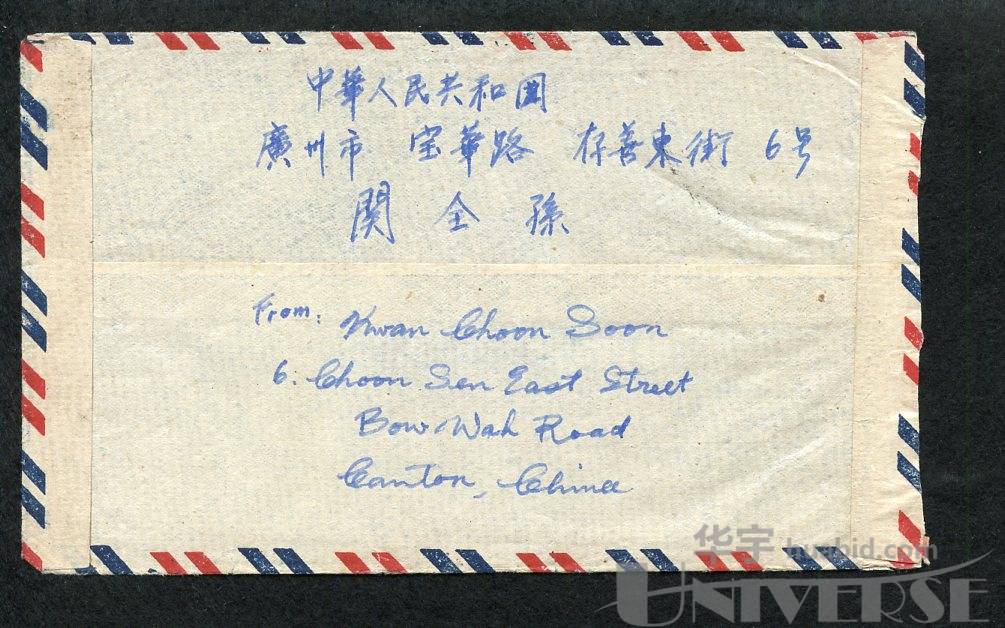 中華人民共和國
廣州市 宝華路 存善東街 6号
関全孫
From: Kwan Choon Soon
6. Choon Sen East Street
Bow Wah Road
Canton, China
华宇 huabid.com
UNIVERSE